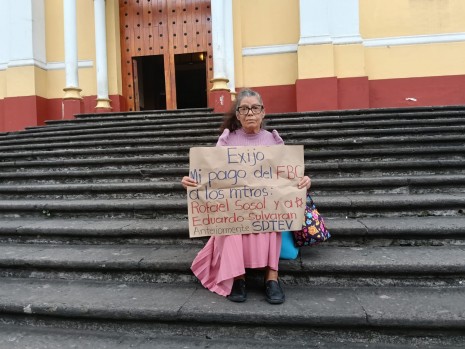 Exijo
Mi pago del FPC
a los mtros:
Rafael Sosol y a
Eduardo Galvarán
Anteriormente SDTEV